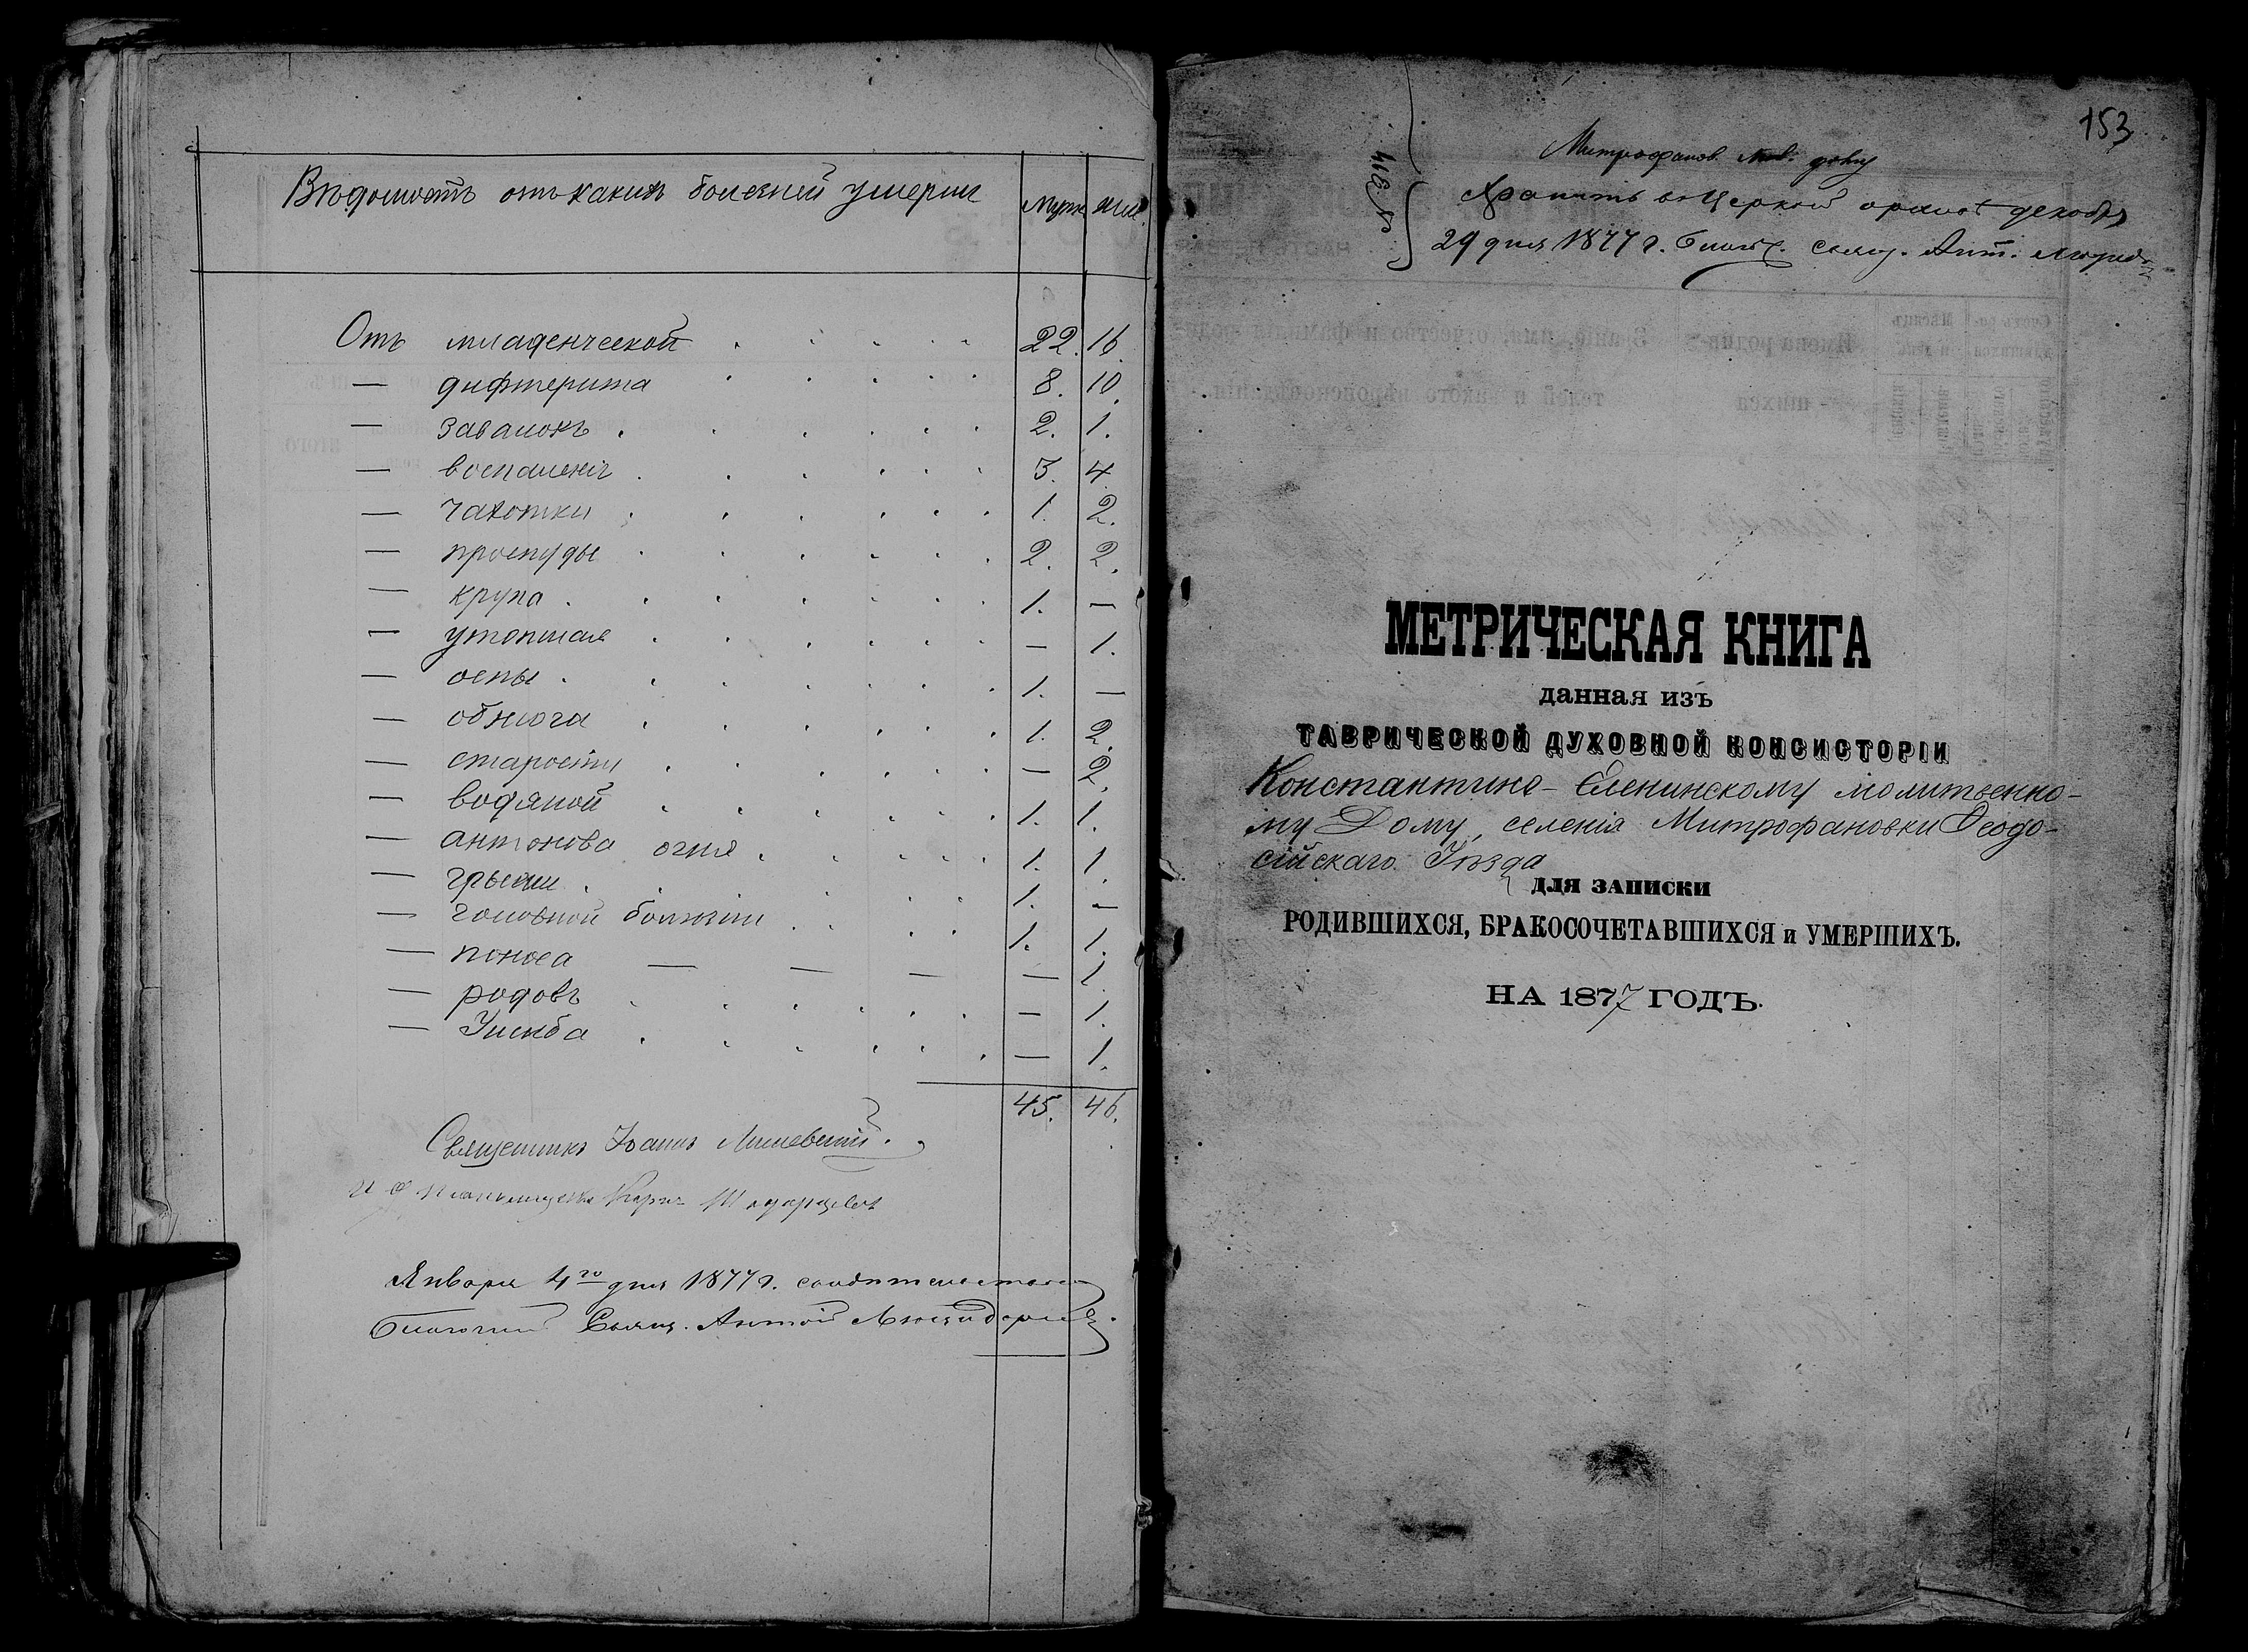 Вѣдомость отъ какихъ болезней умерли
Муж. жен.
Отъ младенческой . . . . . 22. 16.
— дифтерита . . . . . 8. 10.
— завалокъ . . . . . . 2. 1.
— воспаленія . . . . . . 3. 4.
— чахотки . . . . . . 1. 2.
— простуды . . . . . . 2. 2.
— крупа . . . . . . . 1. —
— утопшая . . . . . . — 1.
— оспы . . . . . . . 1. —
— обжога . . . . . . 1. 2.
— старости . . . . . . — 2.
— водяной . . . . . . 1. 1.
— антонова огня . . . . . 1. 1.
— грыжи . . . . . 1. —
— головной болезни . . . . 1. 1.
— поноса — — — — 1.
— родовъ . . . . . . — 1.
— Ушиба . . . . . . — 1.
45. 46.
Священникъ Іоаннъ
И д псаломщика
Января 4го дня 1877 г. свидѣтельствовалъ
Благочин. Свящ. Антоній
153
№ 314
Митрофанов. мол. дому
Хранить въ церков архивѣ декабря
29 дня 1877 г. Благоч. свящ. Ант.
МЕТРИЧЕСКАЯ КНИГА
данная изъ
ТАВРИЧЕСКОЙ ДУХОВНОЙ КОНСИСТОРІИ
Константино-Еленинскому молитвенно-
му Дому, селенія Митрофановки Ѳеодо-
сійскаго Уѣзда
ДЛЯ ЗАПИСКИ
РОДИВШИХСЯ, БРАКОСОЧЕТАВШИХСЯ и УМЕРШИХЪ.
НА 1877 ГОДЪ.